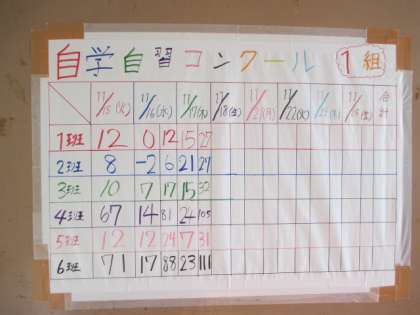 自学自習コンクール 1組
11/15(火) 11/16(水) 11/17(木) 11/18(金) 11/21(月) 11/22(火) 合計
1班 12 0 12 15 27
2班 8 -2 6 21 27
3班 10 7 17 15 32
4班 67 14 81 24 105
5班 12 12 24 7 31
6班 71 17 88 23 111